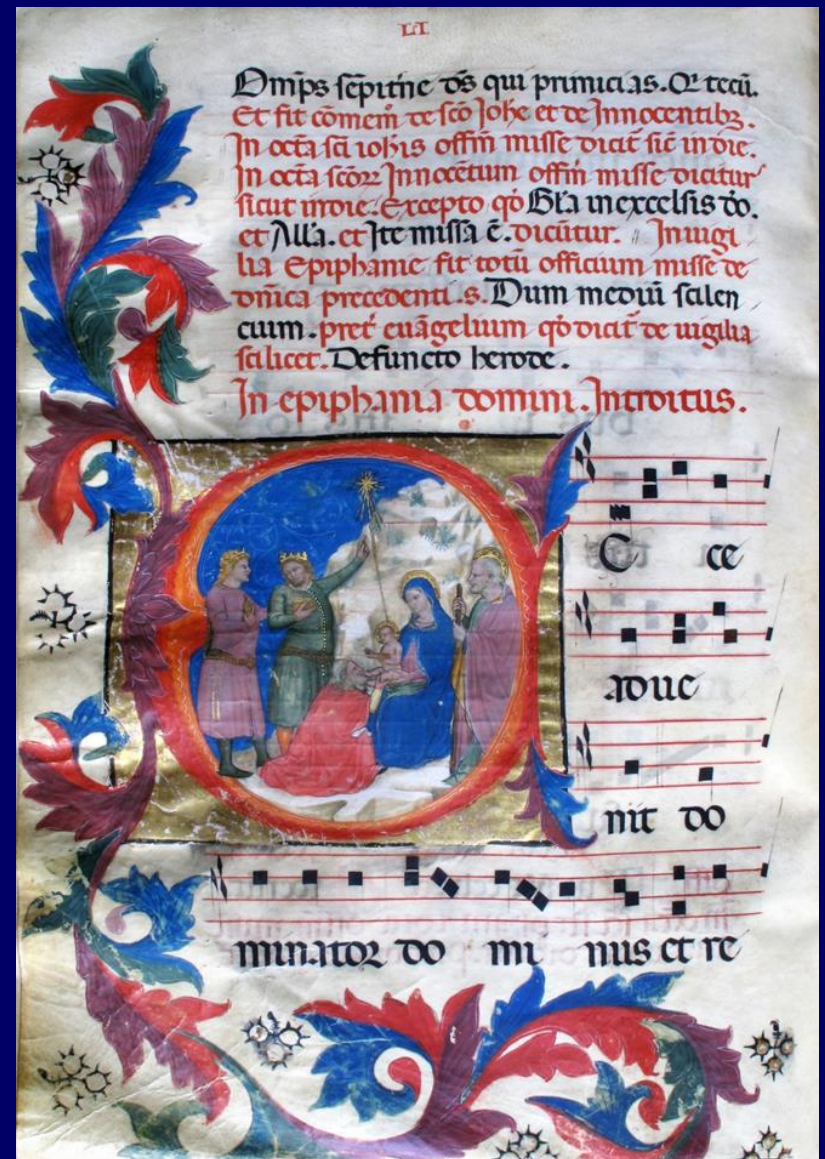 LI
Omp̄s sēpitne d̄s qui primicias. Or̄ tecū.
Et fit cōmem̄ de sc̄o Johe et de Innocentibꝫ.
In octa sc̄i iohīs offm̄ misse dicit̄ sic̄ in die.
In octa sc̄oꝝ Innocētum offm̄ misse dicitur
sicut in die. Excepto qō Gl̄a in excelsis dō.
et All̄a. et Ite missa ē. dicūtur. In uigi
lia Epiphanie fit totū officium misse de
dn̄ica precedenti .s. Dum mediū scilen
cium. pret̄ euāgelium qō dicit̄ de uigilia
scilicet. Defuncto herode.
In epiphania domini. Introitus.
E ce
adue
nit do
minator do mi nus et re